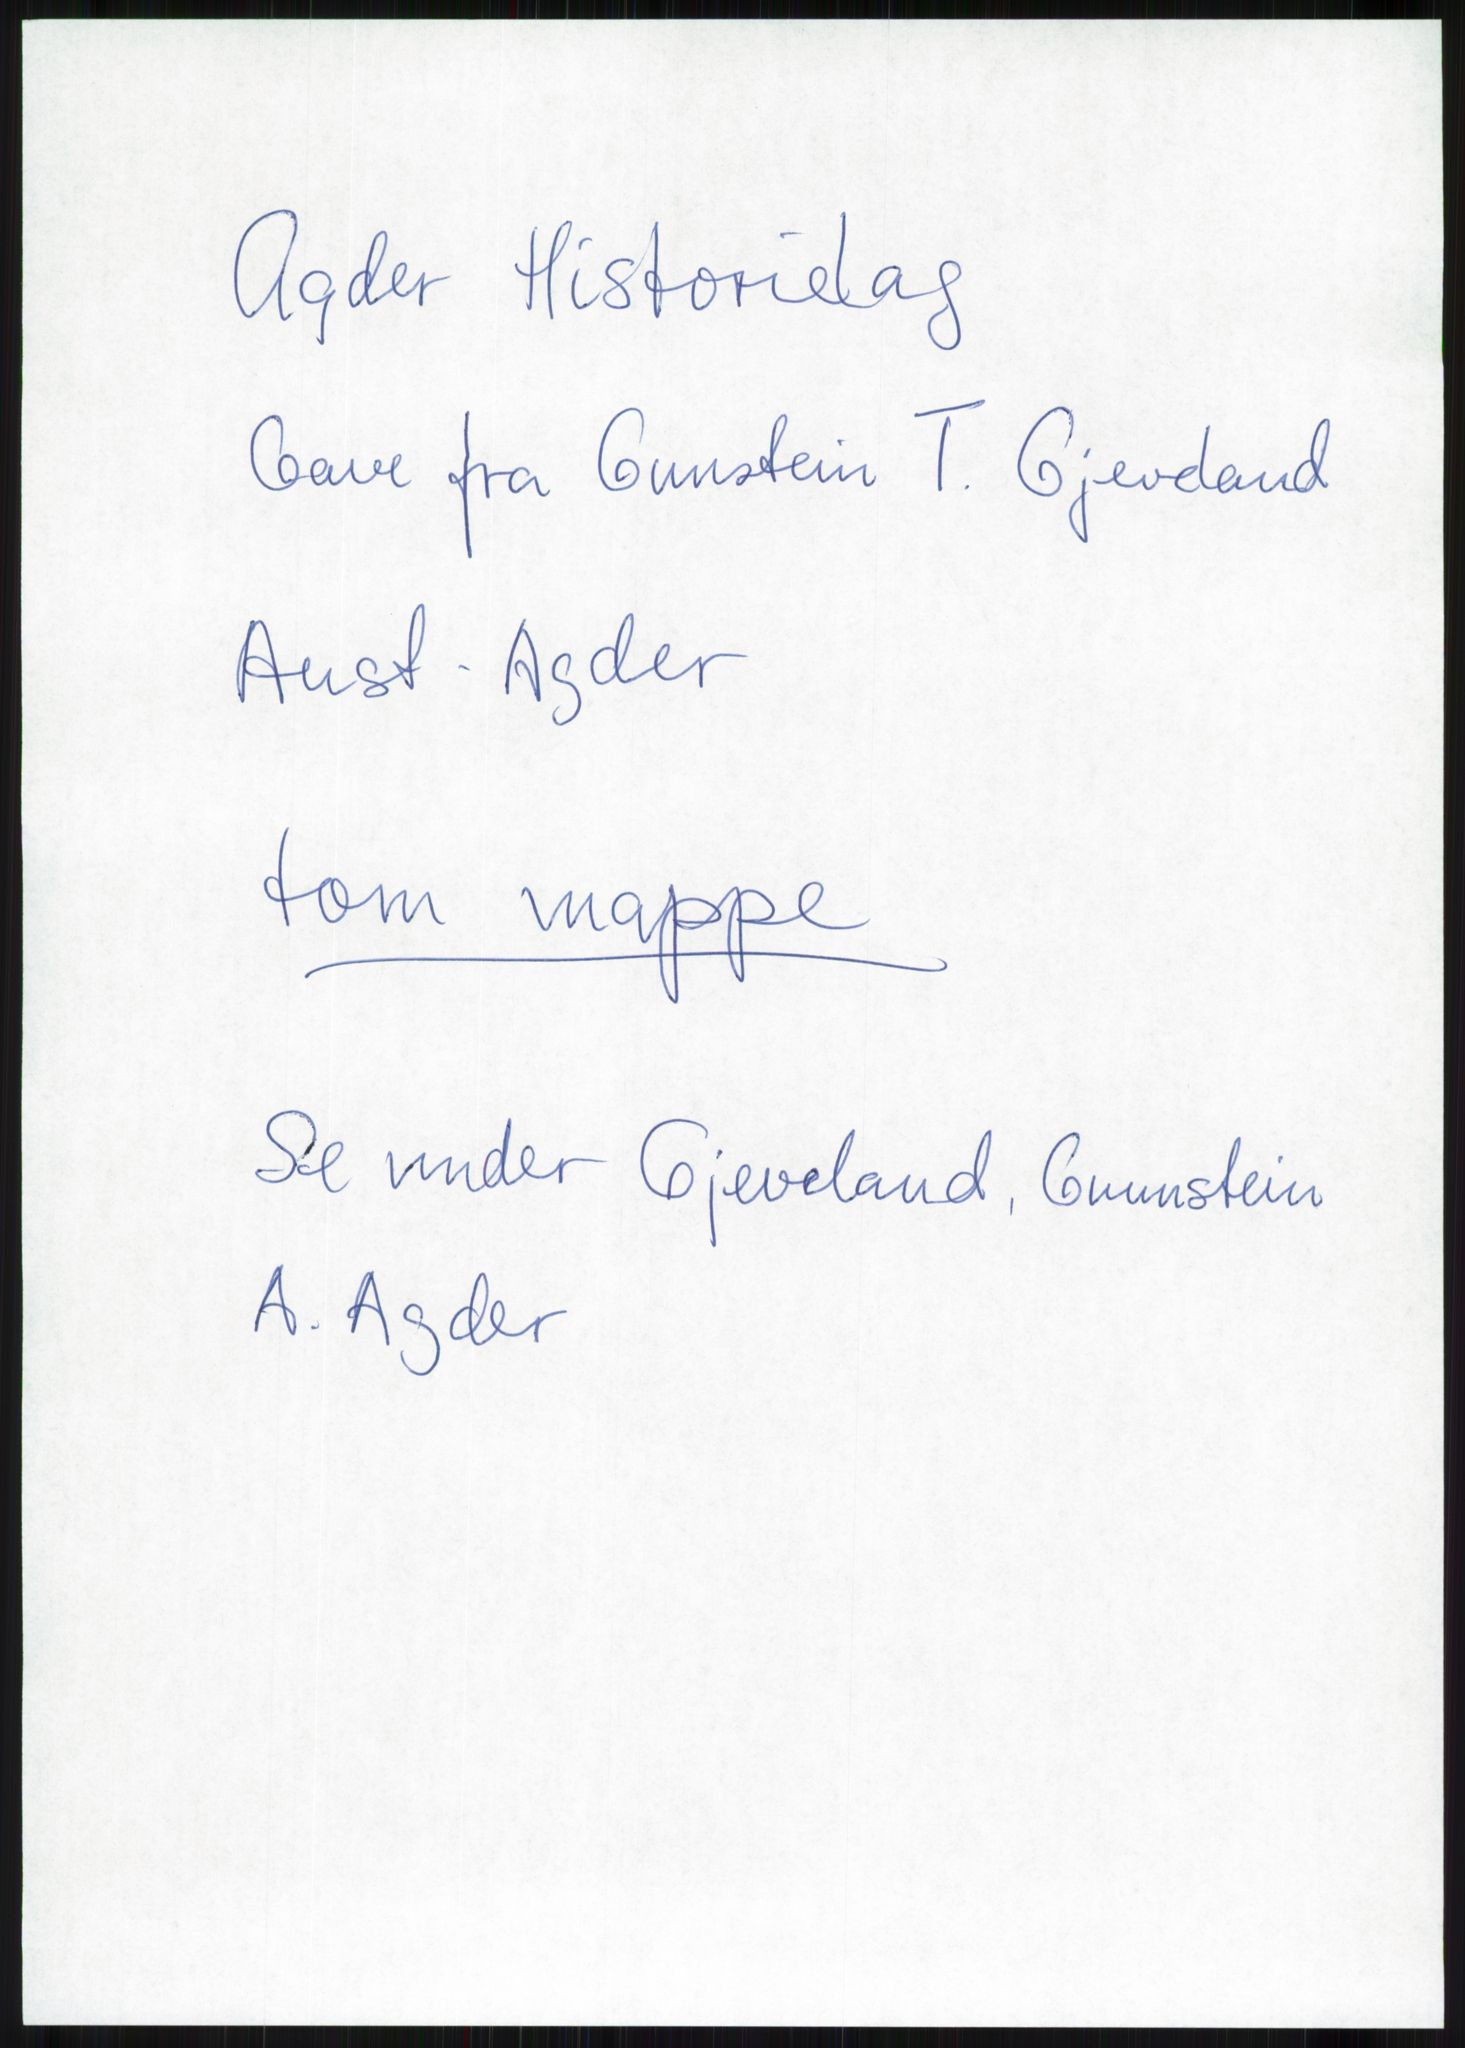 Agder Historielag
Gave fra Gunstein T. Gjeveland
Aust-Agder
tom mappe
Se under Gjeveland, Gunnstein
A. Agder